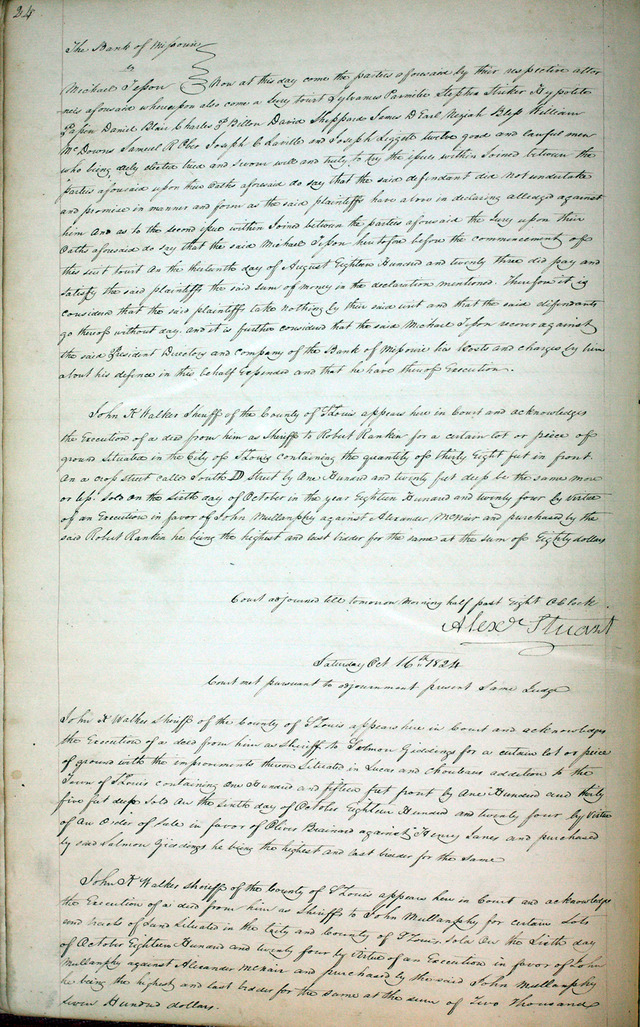 24
The Bank of Missouri
vs
Michael Tesson Now at this day come the parties aforesaid by their respective attor
neis aforesaid whereupon also come a Jury towit Sylvanus Parmilee Stephen Stricker Hypolete
Papin Daniel Blair Charles F Billon David Sheppard James D Earl Neziah Bliss William
Mc Downs Samuel R Ober Joseph Charless and Joseph Liggett twelve good and lawful men
who being duly elected tried and sworn well and truly to try the issues within Joined between the
parties aforesaid upon their Oaths aforesaid do say that the said defendant did not undertake
and promise in manner and form as the said plaintiffs have above in declaring alledged against
him And as to the second issue within Joined between the parties aforesaid the Jury upon their
Oaths aforesaid do say that the said Michael Tesson heretofore before the commencement of
this suit towit On the thirteenth day of August Eighteen Hundred and twenty three did pay and
satisfy the said plaintiffs the said sum of money in the declaration mentioned. Therefore it is
considered that the said plaintiffs take nothing by their said writ and that the said defendant
go thereof without day. and it is further considered that the said Michael Tesson recover against
the said President Directors and company of the Bank of Missouri his Costs and charges by him
about his defence in this behalf Expended and that he have thereof Execution.
John K Walker Sheriff of the County of St Louis appears here in Court and acknowledges
the Execution of a deed from him as Sheriff to Robert Rankin for a certain lot or piece of
ground Situated in the City of St Louis containing the quantity of thirty Eight feet in front
On a cross street called South D Street by One Hundred and twenty feet deep be the same more
or less. Sold on the Sixth day of October in the year Eighteen Hundred and twenty four by Virtue
of an Execution in favor of John Mullanphy against Alexander McNair and purchased by the
said Robert Rankin he being the highest and last bidder for the same at the sum of Eighty dollars
Court adjourned till tomorrow Morning half past Eight OClock
Alexr Stuart
Saturday Oct 16th 1824
Court met pursuant to adjournment present Same Judge
John K Walker Sheriff of the County of St Louis appears here in Court and acknowledges
the Execution of a deed from him as Sheriff to Salmon Giddings for a certain lot or piece
of ground with the improvments thereon Situated in Lucas and Chouteaus addition to the
Town of St Louis containing One Hundred and fifteen feet front by One Hundred and thirty
five feet deep Sold On the Sixth day of October Eighteen Hundred and twenty four by Virtue
of An Order of Sale in favor of Oliver Brainard against Henry Janes and purchased
by said Salmon Giddings he being the highest and last bidder for the Same
John K Walker Sheriff of the County of St Louis appears here in Court and acknowledges
the Execution of a deed from him as Sheriff to John Mullanphy for certain Lots
and tracts of Land Situated in the City and County of St Louis. Sold On the Sixth day
of October Eighteen Hundred and twenty four by Virtue of an Execution in favor of John
Mullanphy against Alexander McNair and purchased by the said John Mullanphy
he being the highest and last bidder for the same at the sum of Two Thousand
Seven Hundred dollars.